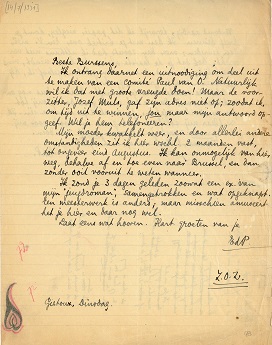 Beste Burssens,
Ik ontvang daarnet een uitnoodiging om deel uit
te maken van een comité Paul van O. Natuurlijk
wil ik dat met groote vreugde doen! Maar de voor-
zitter, Jozef Muls, gaf zijn adres niet op; zoodat ik,
om tijd uit te winnen, jou maar mijn antwoord op-
geef. Wil je hem telefoneeren?
Mijn moeder kwakkelt weer, en door allerlei andere
omstandigheden zit ik hier weeral 2 maanden vast,
tot ongeveer eind Augustus. Ik kan onmogelijk van hier
weg, behalve af en toe even naar Brussel, en dan
zonder ooit vooruit te weten wanneer.
Ik zond je 3 dagen geleden zoowat een ex. van
mijn "jeugdroman", samengetrokken en wat opgeknapt.
Een meesterwerk is anders, maar misschien amuseert
het je hier en daar nog wel.
Laat eens wat hooren. Hart. groeten van je
EdP
Z.O.Z.
Gistoux, Dinsdag.